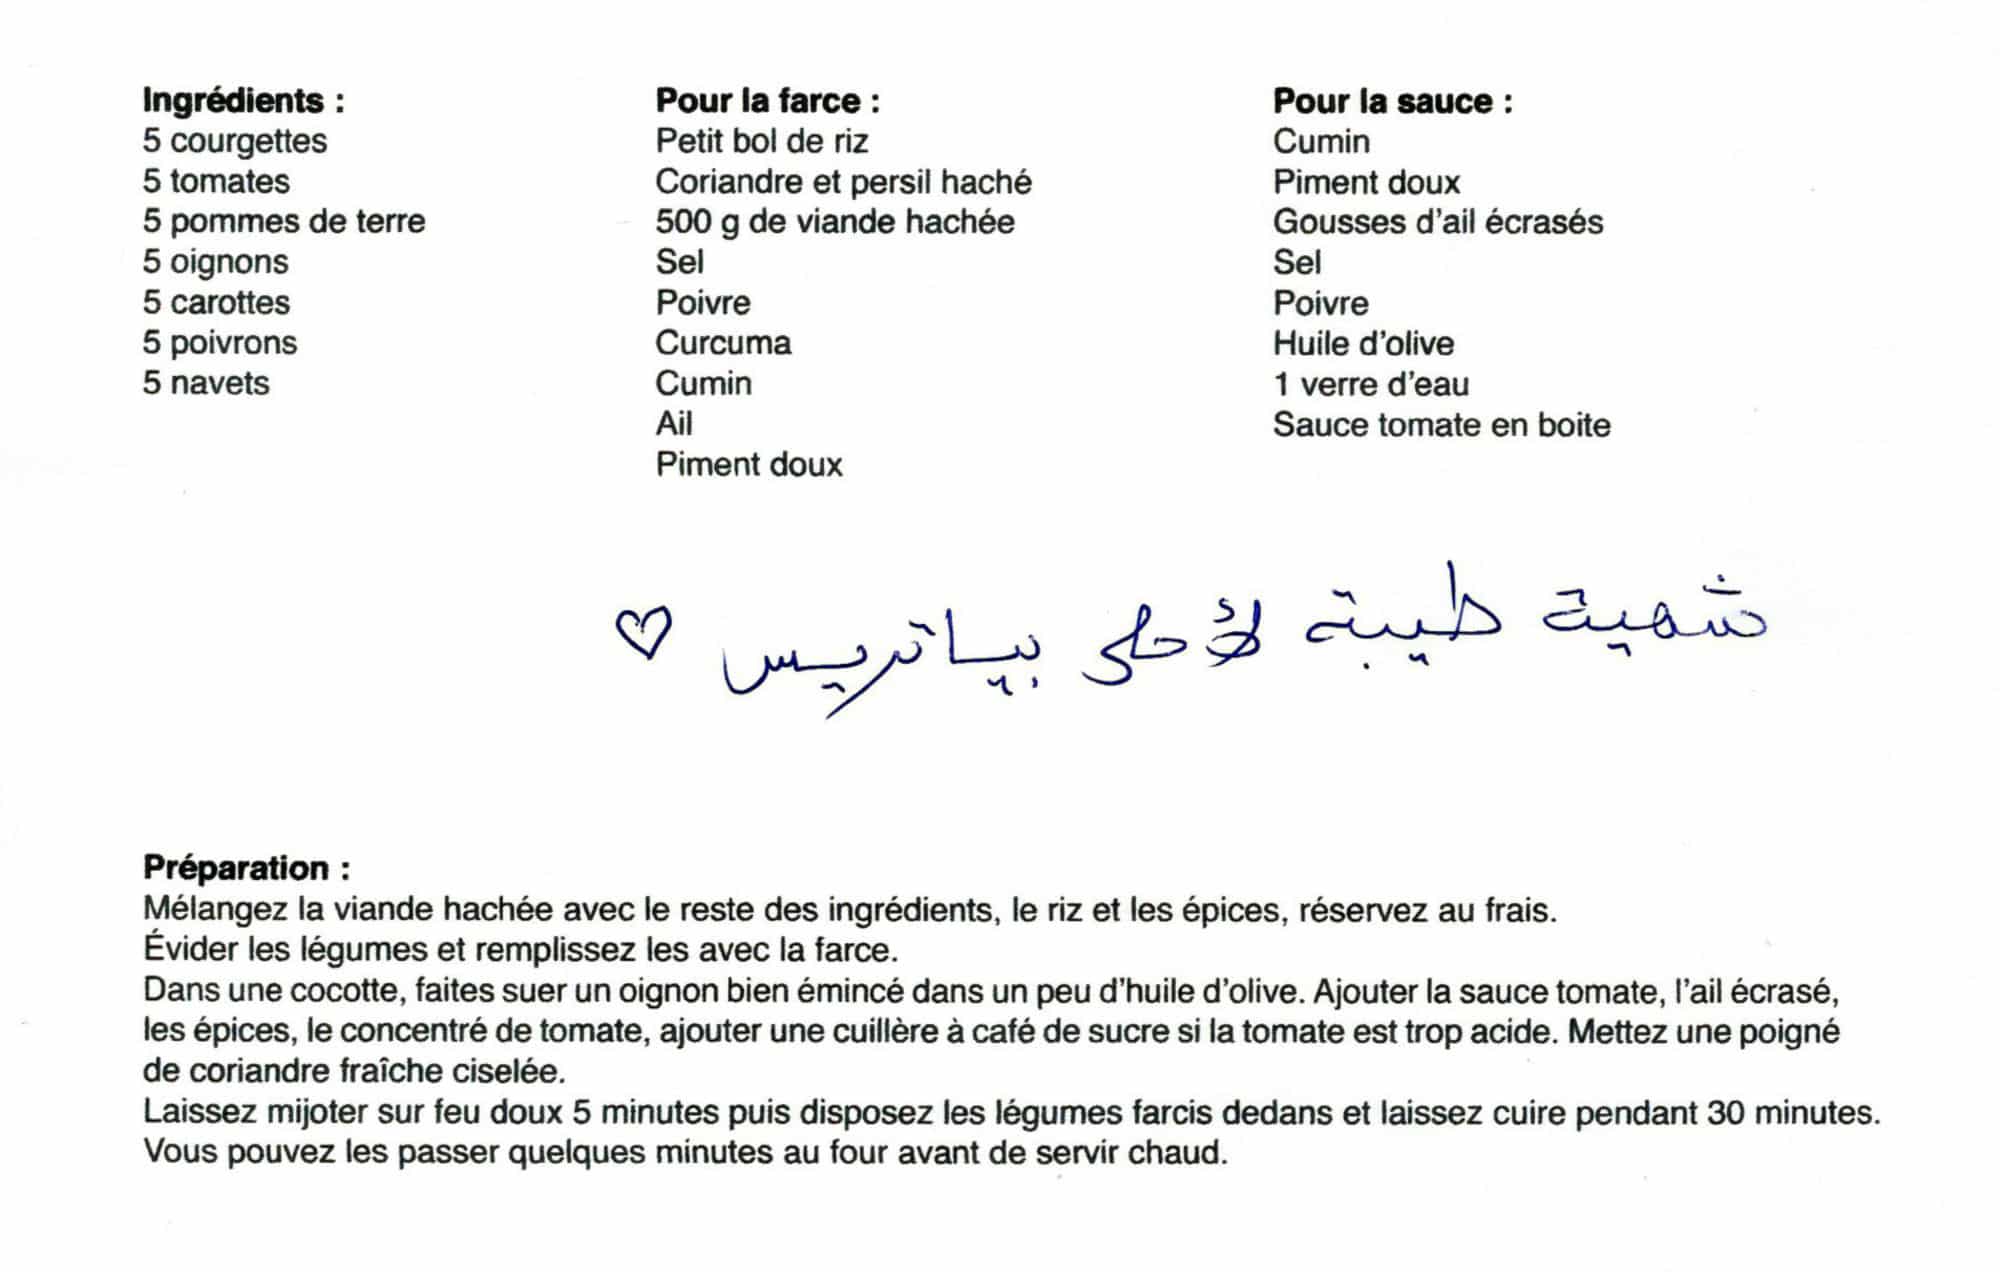 Ingrédients :
5 courgettes
5 tomates
5 pommes de terre
5 oignons
5 carottes
5 poivrons
5 navets
Pour la farce :
Petit bol de riz
Coriandre et persil haché
500 g de viande hachée
Sel
Poivre
Curcuma
Cumin
Ail
Piment doux
Pour la sauce :
Cumin
Piment doux
Gousses d'ail écrasés
Sel
Poivre
Huile d'olive
1 verre d'eau
Sauce tomate en boite
شهية طيبة لأحلى بياتريس ♡
Préparation :
Mélangez la viande hachée avec le reste des ingrédients, le riz et les épices, réservez au frais.
Évider les légumes et remplissez les avec la farce.
Dans une cocotte, faites suer un oignon bien émincé dans un peu d'huile d'olive. Ajouter la sauce tomate, l'ail écrasé,
les épices, le concentré de tomate, ajouter une cuillère à café de sucre si la tomate est trop acide. Mettez une poigné
de coriandre fraîche ciselée.
Laissez mijoter sur feu doux 5 minutes puis disposez les légumes farcis dedans et laissez cuire pendant 30 minutes.
Vous pouvez les passer quelques minutes au four avant de servir chaud.